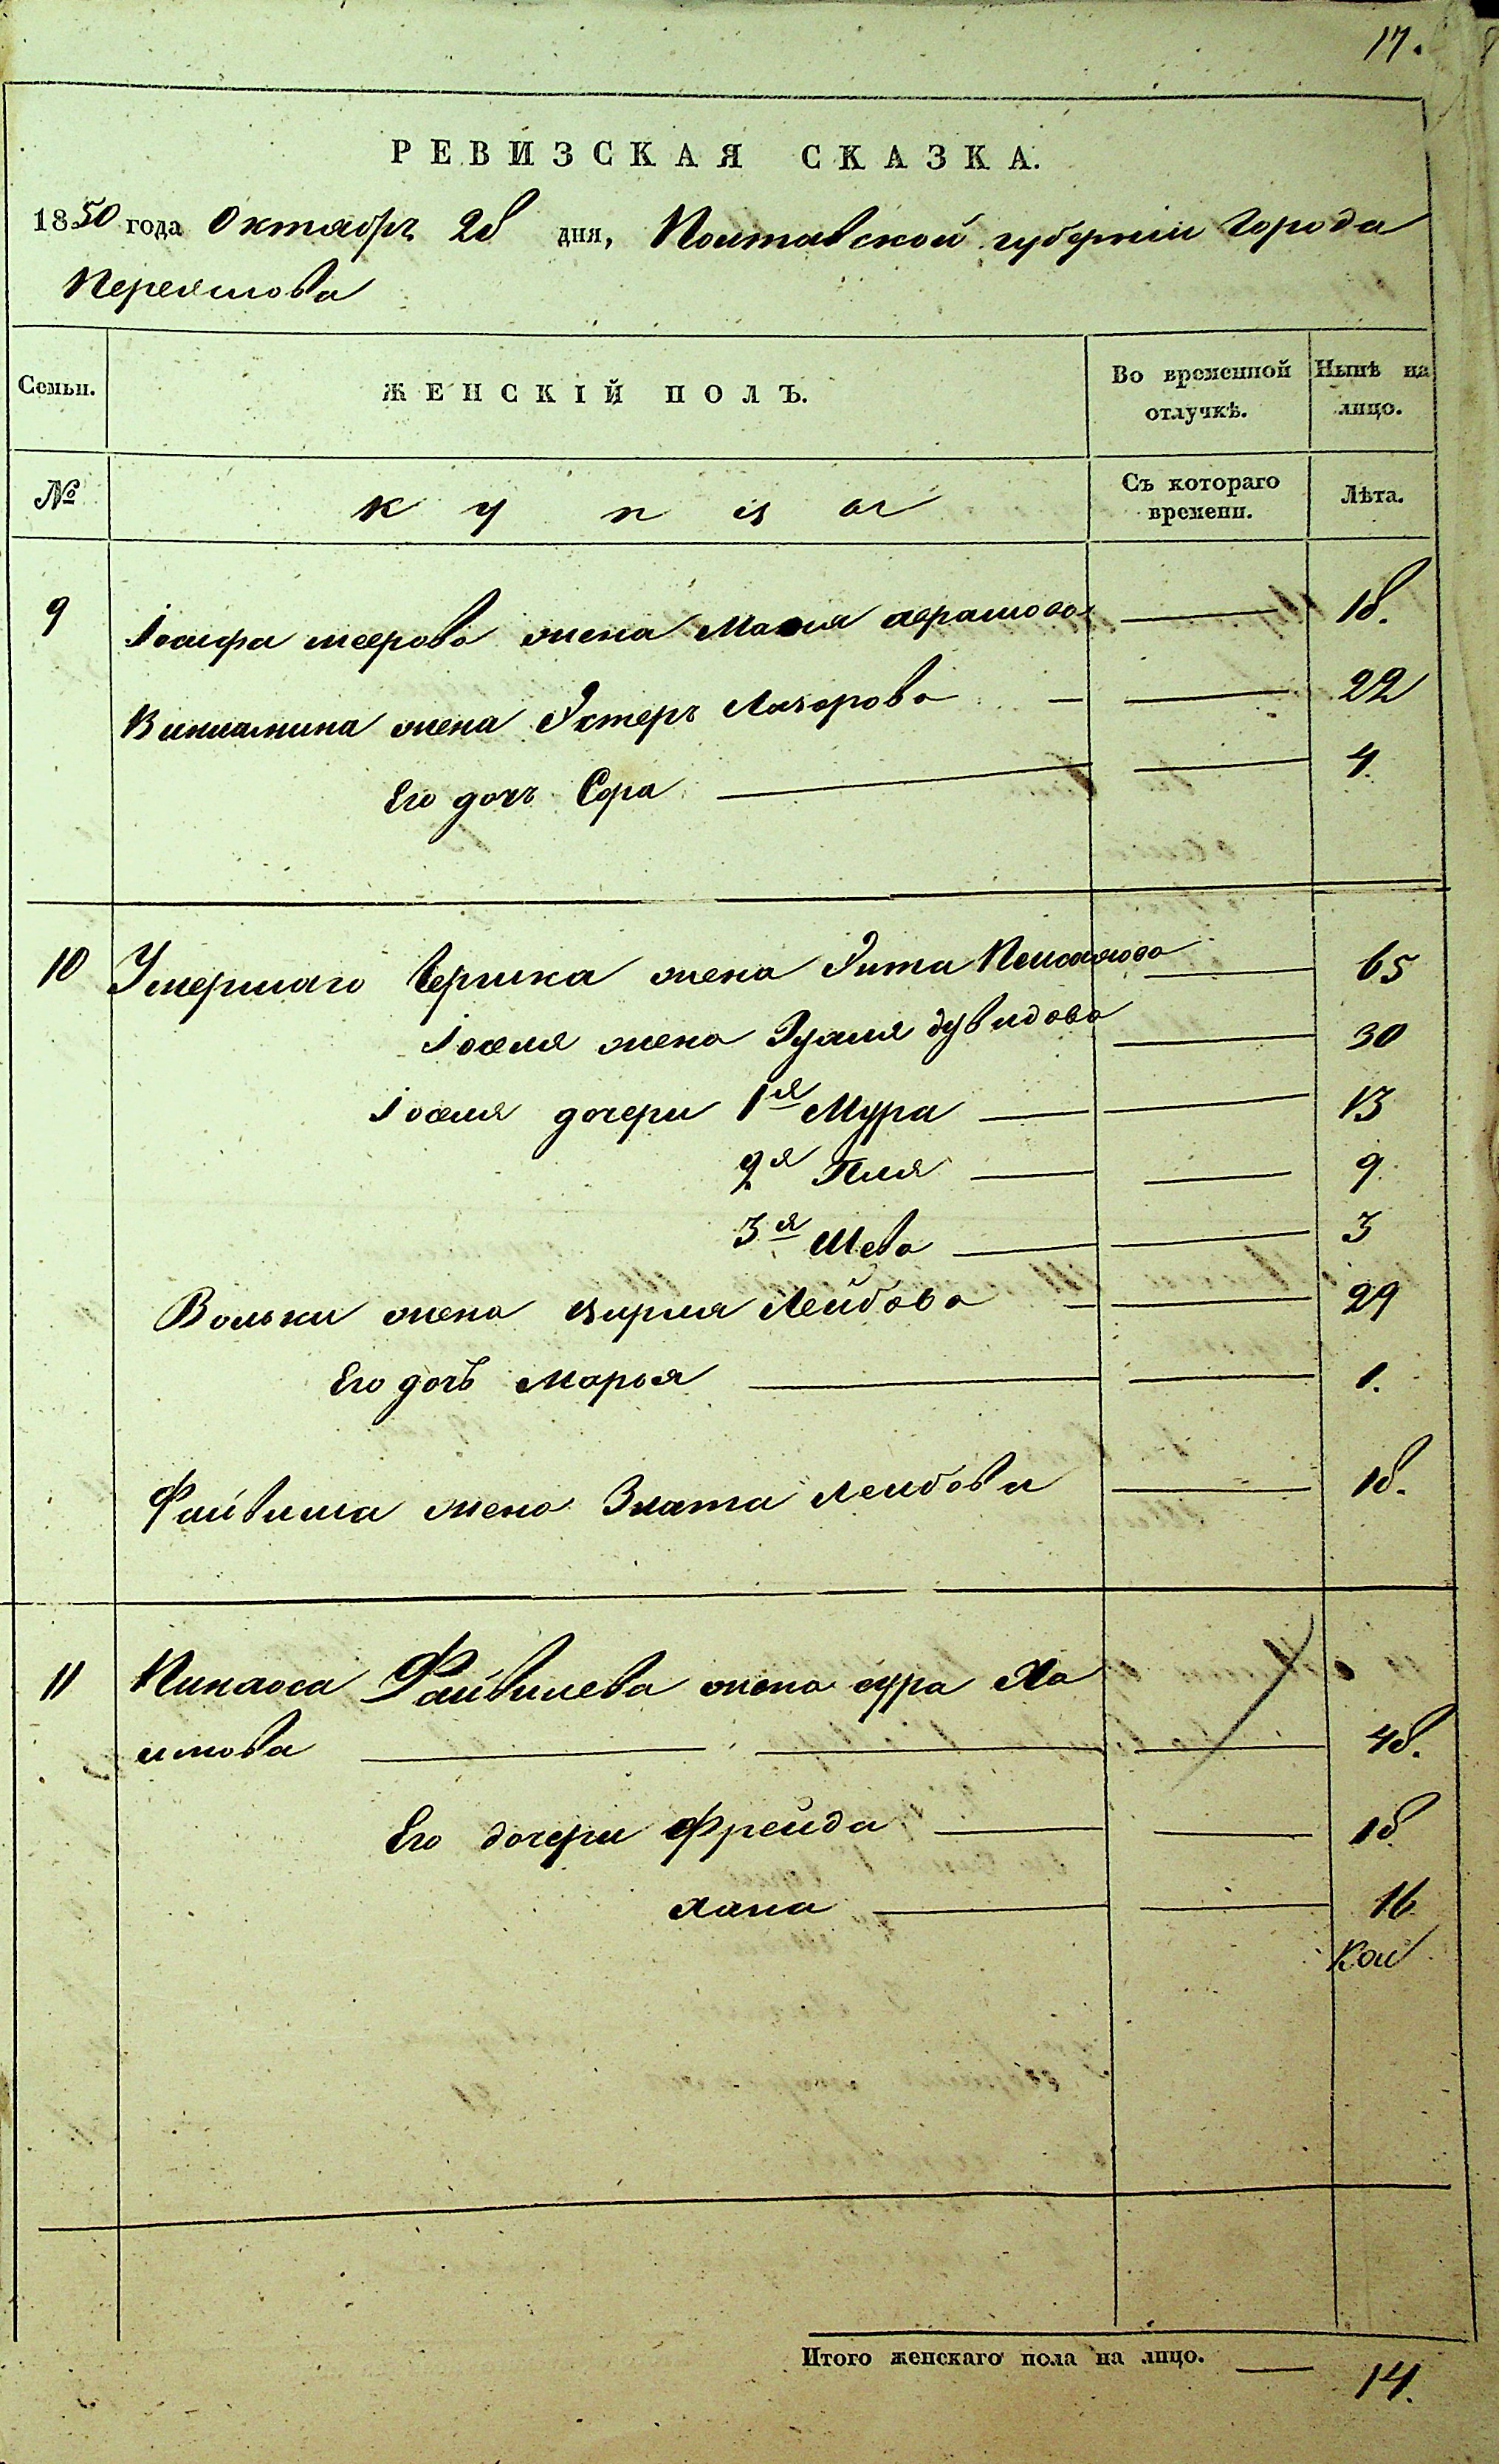 17.
РЕВИЗСКАЯ СКАЗКА.
1850 года Октября 28 дня, Полтавской губернии Города
Переяслова
Семьи. ЖЕНСКІЙ ПОЛЪ. Во временной отлучкѣ. Нынѣ на лицо.
№ купца Съ котораго времени. Лѣта.
9 Іосифа меерова жена Абрамова 18.
Виниамина жена Эстеръ Лазорова 22
Его дочь Сора 4.
10 Умершаго Гершка жена 65
Іоселя жена Дувидова 30
Іоселя дочери 1я Мура 13
2я 9
3я Шева 3
Вольки жена Цирля Лейбова 29
Его дочь Марья 1.
Файвиша жена Злата Лейбова 18.
11 Пинхоса Файвишева жена сура Ха
имова 48.
Его дочери Фрейда 18
хана 16
Итого женскаго пола на лицо. 14.